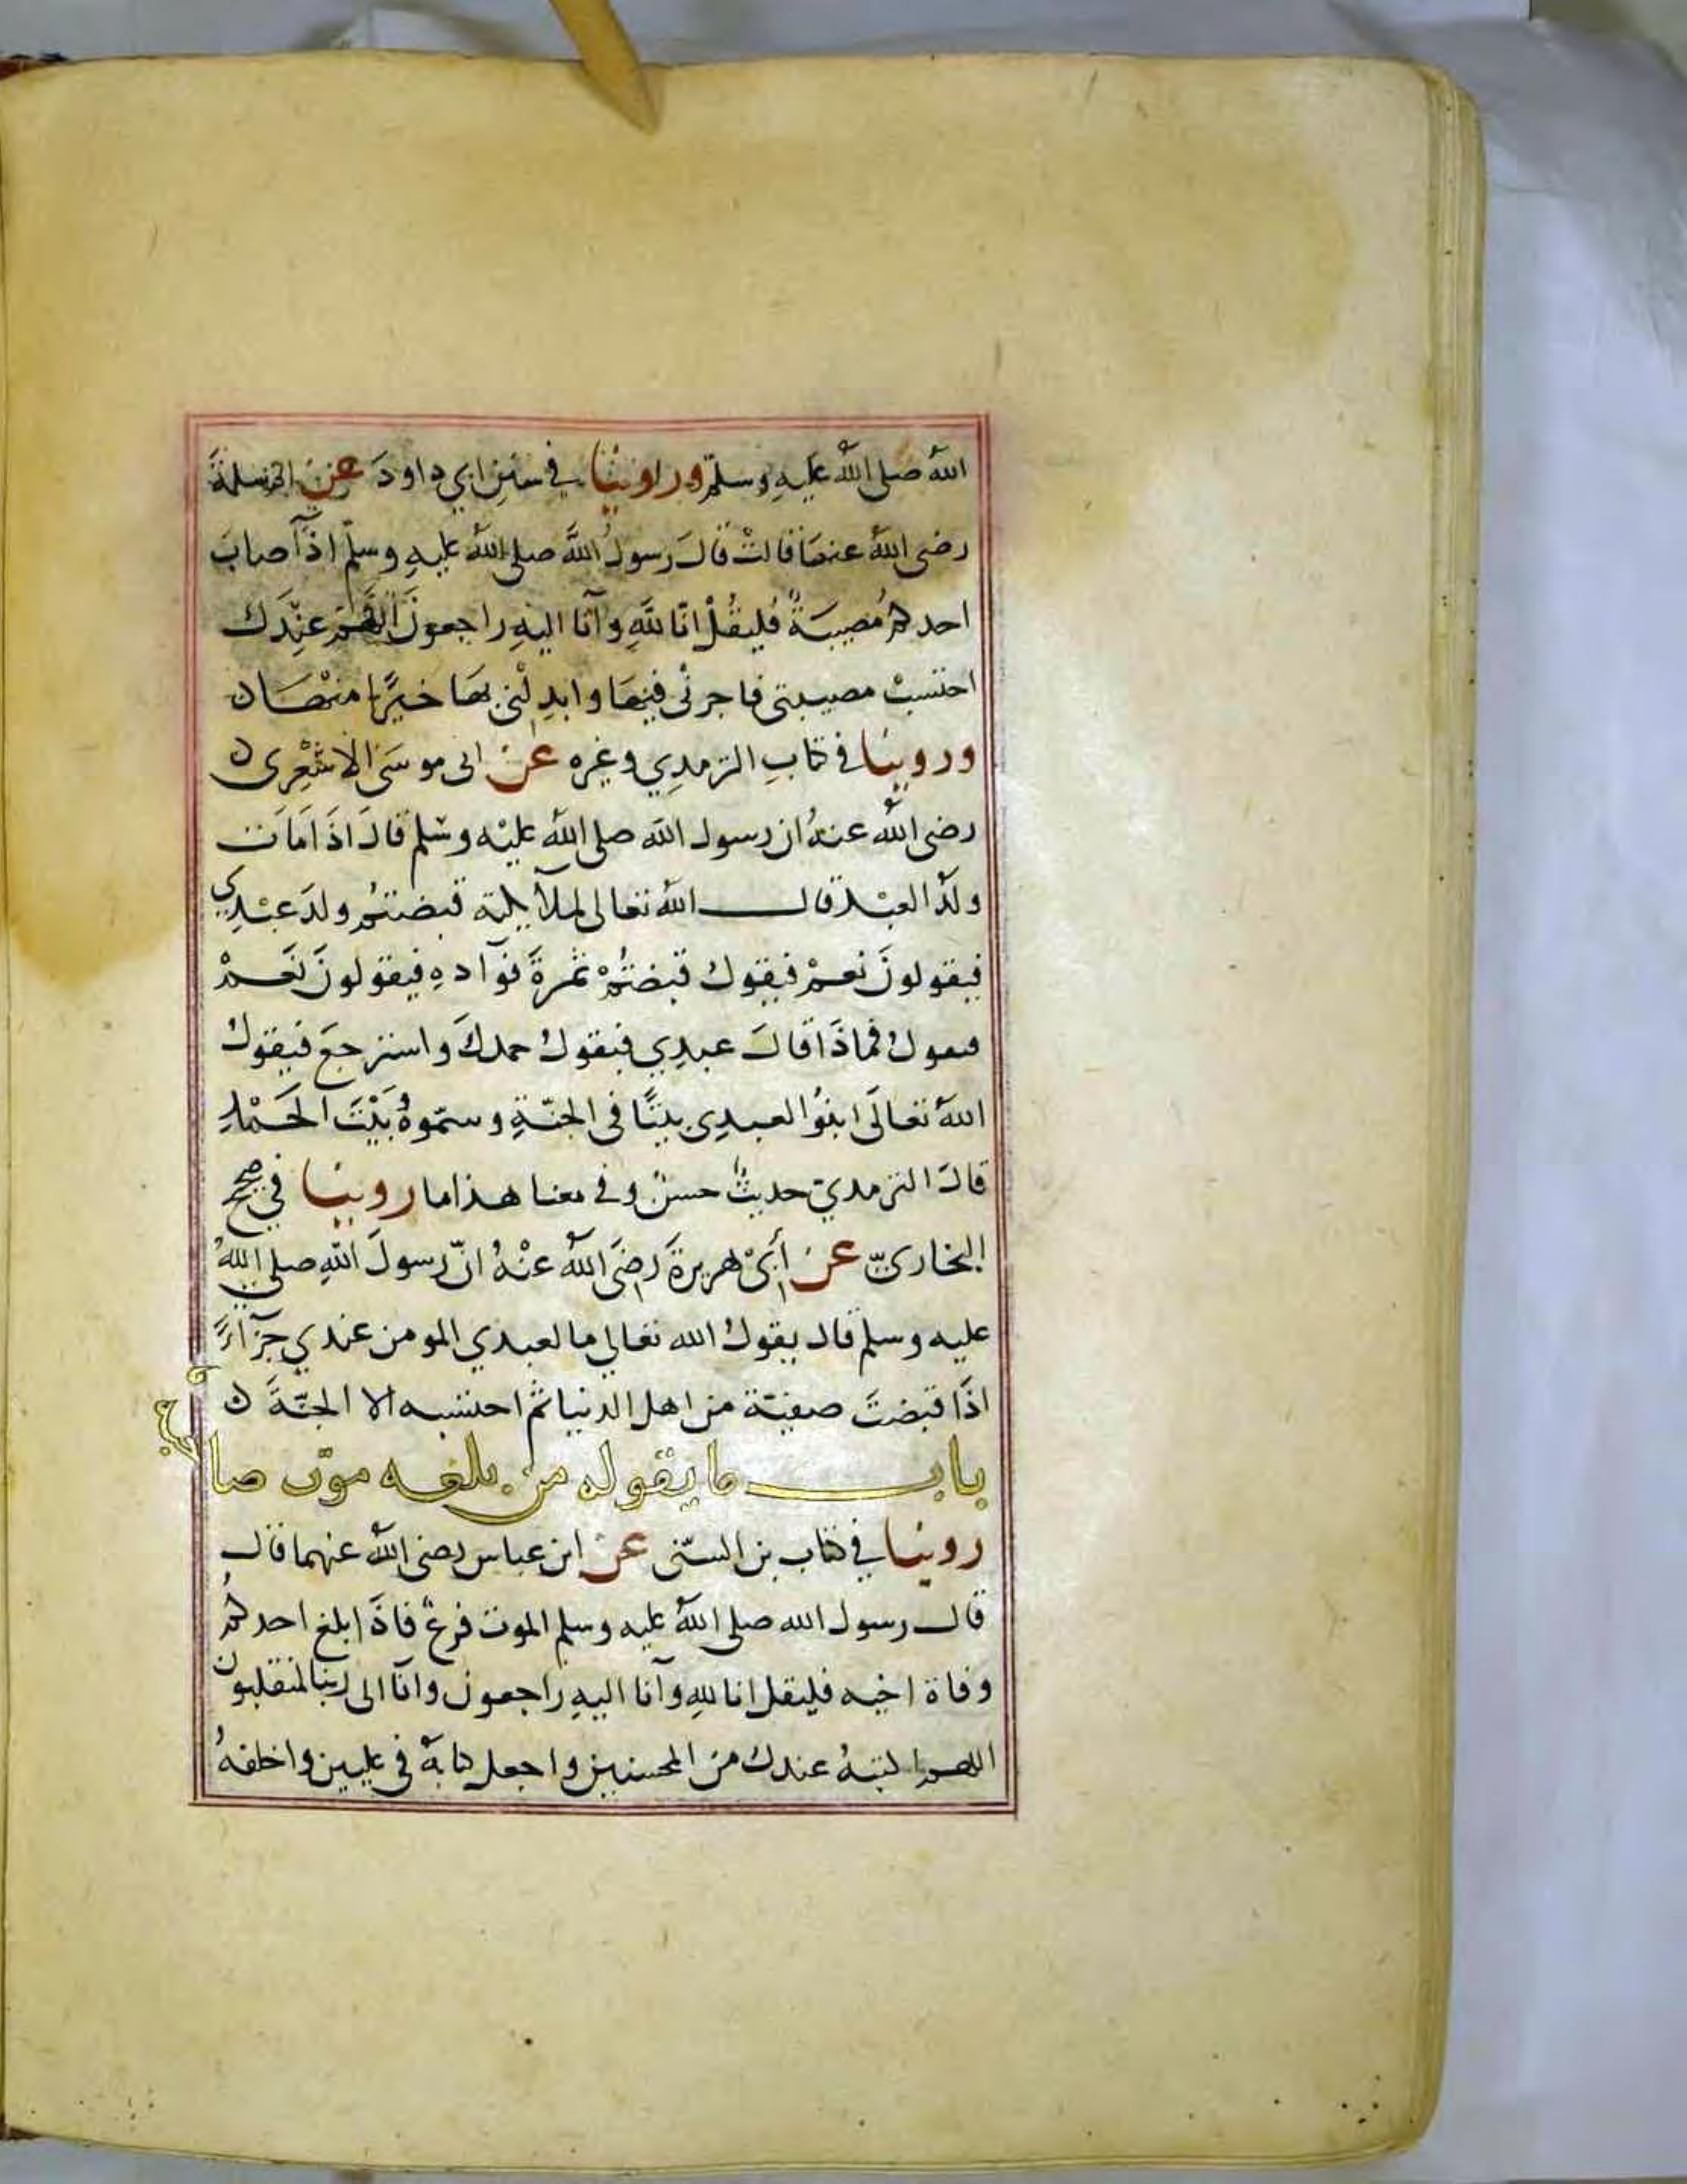 الله صلى الله عليهِ وسلم وراوينا في سننِ ابي داودَ عن ام سلمةَ
رضى الله عنها قالتْ قالَ رسولُ اللَّه صلى اللهُ عليهِ وسلّم اذآ اصابَ
احدكم مُصيبَةٌ فليقُلْ انّا للَّهِ وآنا اليهِ راجعونَ اللَّهم عنِدَك
احتسبْ مصيبتى فاجرنْى فيهَا وابدِلْنى بهَا خيرًا منْهَا ن
وروينا في كتابِ الترمدِي وغيره عن ابى موسَى الاشْعِرى ن
رضى اللهُ عنهُ ان رسول الله صلى اللهُ عليْه وسَلم قالَ اذَا مَاتَ
ولَدُ العبْد قال اللهُ تعالى لملآيكة قبضتُم ولدَ عبْدِي
فيقولونَ نعمْ فيقول قبَضتُمْ ثمرةَ فوآدهِ فيقولونَ نَعَمْ
فيعولُ فماذَا قالَ عبدِي فيقولُ حمدكَ واسترجعَ فيقولُ
اللهُ تعالَى ابنُوا لعبدِى بيتًا فى الجنّةِ وسمّوهُ بَيْتَ الحَمْدِ
قالَ الترمدي حديثٌ حسنٌ وفي معنا هذا ما روينا في صحيح
البخاريّ عن أبىْ هريرةَ رضَى اللهُ عنْهُ انّ رسولَ اللهِ صلى اللهُ
عليه وسلم قال يقولُ الله تعالي ما لعبدي المومن عندي جزآءً
اذَا قبضتَ صفيّة من اهل الدنيا ثم احتسبه الا الجنّةَ ن
باب ما يقوله من بلغه موت صاحبه
روينا في كتاب بن السنّى عن ابن عباس رضى اللهُ عنهما قال
قال رسول الله صلى اللهُ عليه وسلم الموت فزعٌ فاذَا بلغ احدكمُ
وفاة اخيه فليقل انا للهِ وآنا اليهِ راجعون وانآ الى ربنا لمنقلبون
اللهم اكتبهُ عندك منَ المحسنين واجعل كتابهُ فى عليين واخلفهُ